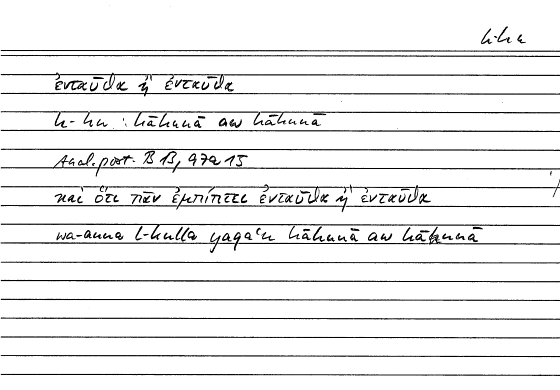 h-hn
ἐνταῦθα ἢ ἐνταῦθα
h-hn : hāhunā aw hāhunā
Anal. post. B 13, 97a 15
καὶ ὅτι πᾶν ἐμπίπτει ἐνταῦθα ἢ ἐνταῦθα
wa-anna l-kulla yaqaʿu hāhunā aw hāhunā